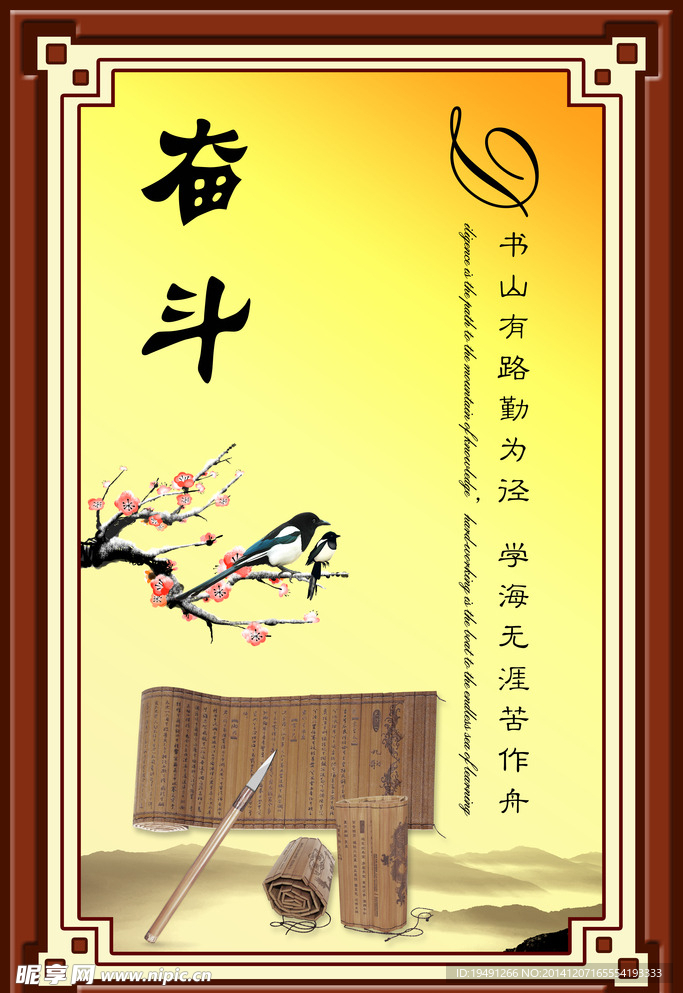 奋斗
书山有路勤为径 学海无涯苦作舟
Diligence is the path to the mountain of knowledge, hard-working is the boat to the endless sea of learning
昵享网 www.nipic.cn
ID:19491266 NO:20141207165554193333